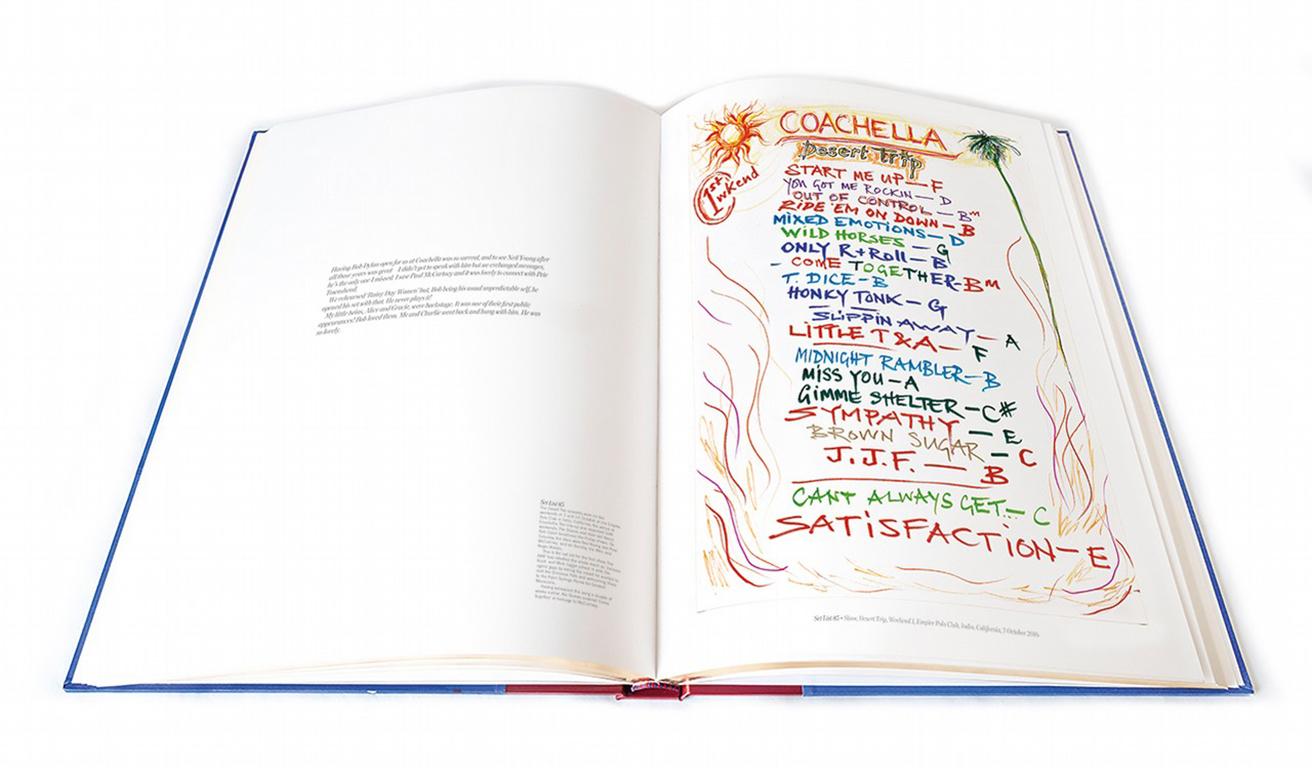 Having Bob Dylan open for us at Coachella was so surreal, and to see Neil Young after
all those years was great I didn't get to speak with him but we exchanged messages,
he's the only one I missed. I saw Paul McCartney and it was lovely to connect with Pete
Townshend.
We rehearsed 'Rainy Day Women' but, Bob being his usual unpredictable self, he
opened his set with that. He never plays it!
My little twins, Alice and Gracie, were backstage. It was one of their first public
appearances! Bob loved them. Me and Charlie went back and hung with him. He was
so lovely.
Set List 85
COACHELLA
Desert Trip
1st wkend
START ME UP — F
YOU GOT ME ROCKIN — D
OUT OF CONTROL — Bm
RIDE 'EM ON DOWN — B
MIXED EMOTIONS — D
WILD HORSES — G
ONLY R+Roll — B
- COME TOGETHER - Bm
T. DICE - B
HONKY TONK — G
SLIPPIN AWAY — A
LITTLE T & A — F
MIDNIGHT RAMBLER — B
MISS YOU — A
GIMME SHELTER — C#
SYMPATHY — E
BROWN SUGAR — C
J.J.F. — B
CANT ALWAYS GET... — C
SATISFACTION — E
Set List 85 • Show, Desert Trip, Weekend 1, Empire Polo Club, Indio, California, 7 October 2016